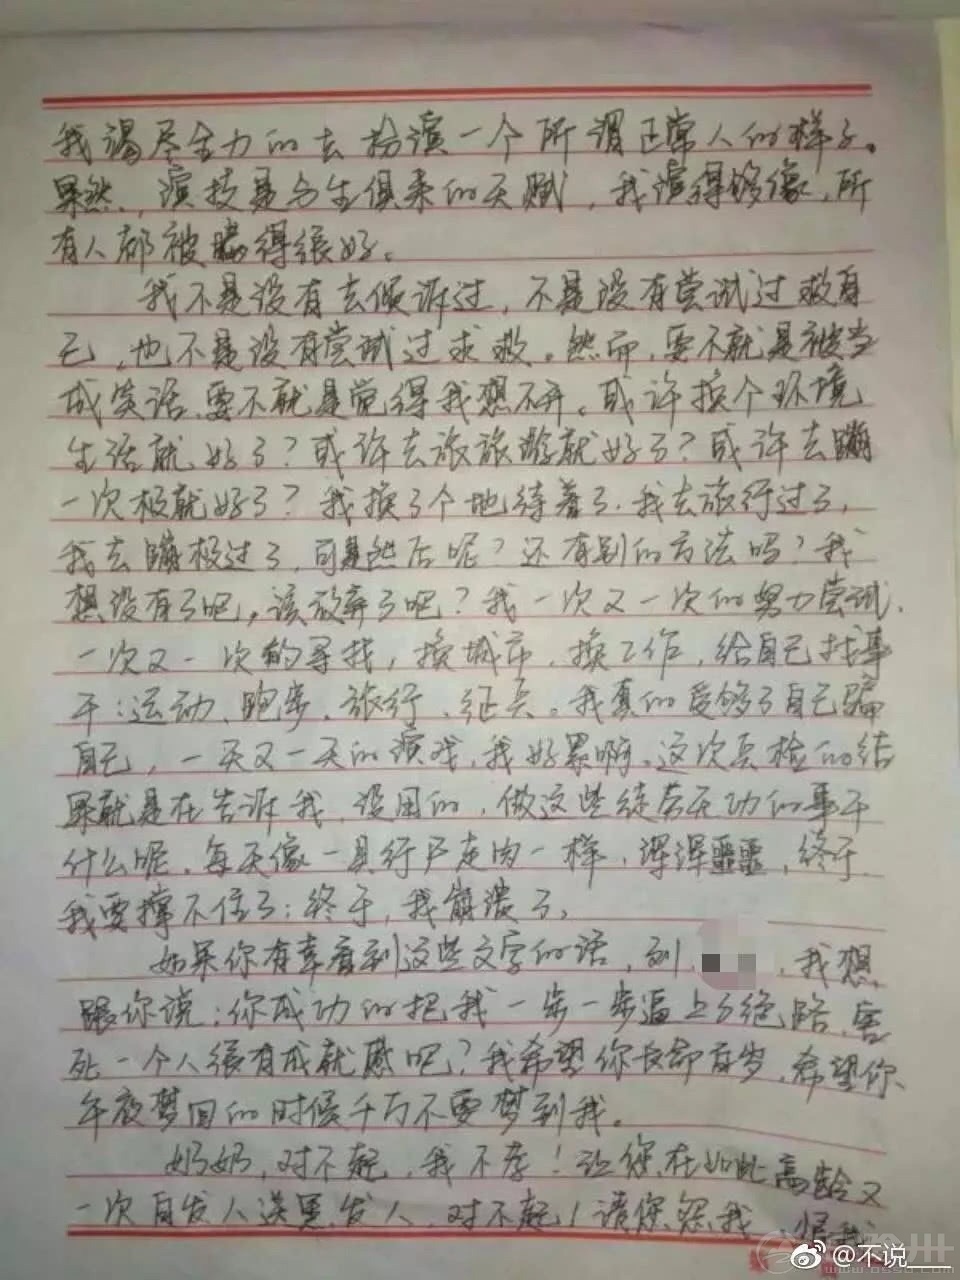 我竭尽全力的去扮演一个所谓正常人的样子。
果然，演技是与生俱来的天赋，我演得够像，所
有人都被骗得很好。
我不是没有去倾诉过，不是没有尝试过救自
己，也不是没有尝试过求救。然而，要不就是被当
成笑话，要不就是觉得我想不开。或许换个环境
生活就好了？或许去旅旅游就好了？或许去蹦
一次极就好了？我换了个地待着了，我去旅行过了，
我去蹦极过了，可是然后呢？还有别的方法吗？我
想没有了吧。该放弃了吧？我一次又一次的努力尝试、
一次又一次的寻找，换城市，换工作，给自己找事
干：运动、跑步、旅行、征兵。我真的受够了自己骗
自己，一天又一天的演戏，我好累啊。这次兵检的结
果就是在告诉我，没用的，做这些徒劳无功的事干
什么呢，每天像一具行尸走肉一样，浑浑噩噩，终于，
我要撑不住了；终于，我崩溃了。
如果你有幸看到这些文字的话，刘，我想
跟你说：你成功的把我一步一步逼上了绝路，害
死一个人很有成就感吧？我希望你长命百岁，希望你
午夜梦回的时候千万不要梦到我。
奶奶，对不起，我不孝！让您在如此高龄又
一次白发人送黑发人，对不起！请您怨我，恨我
@不说___